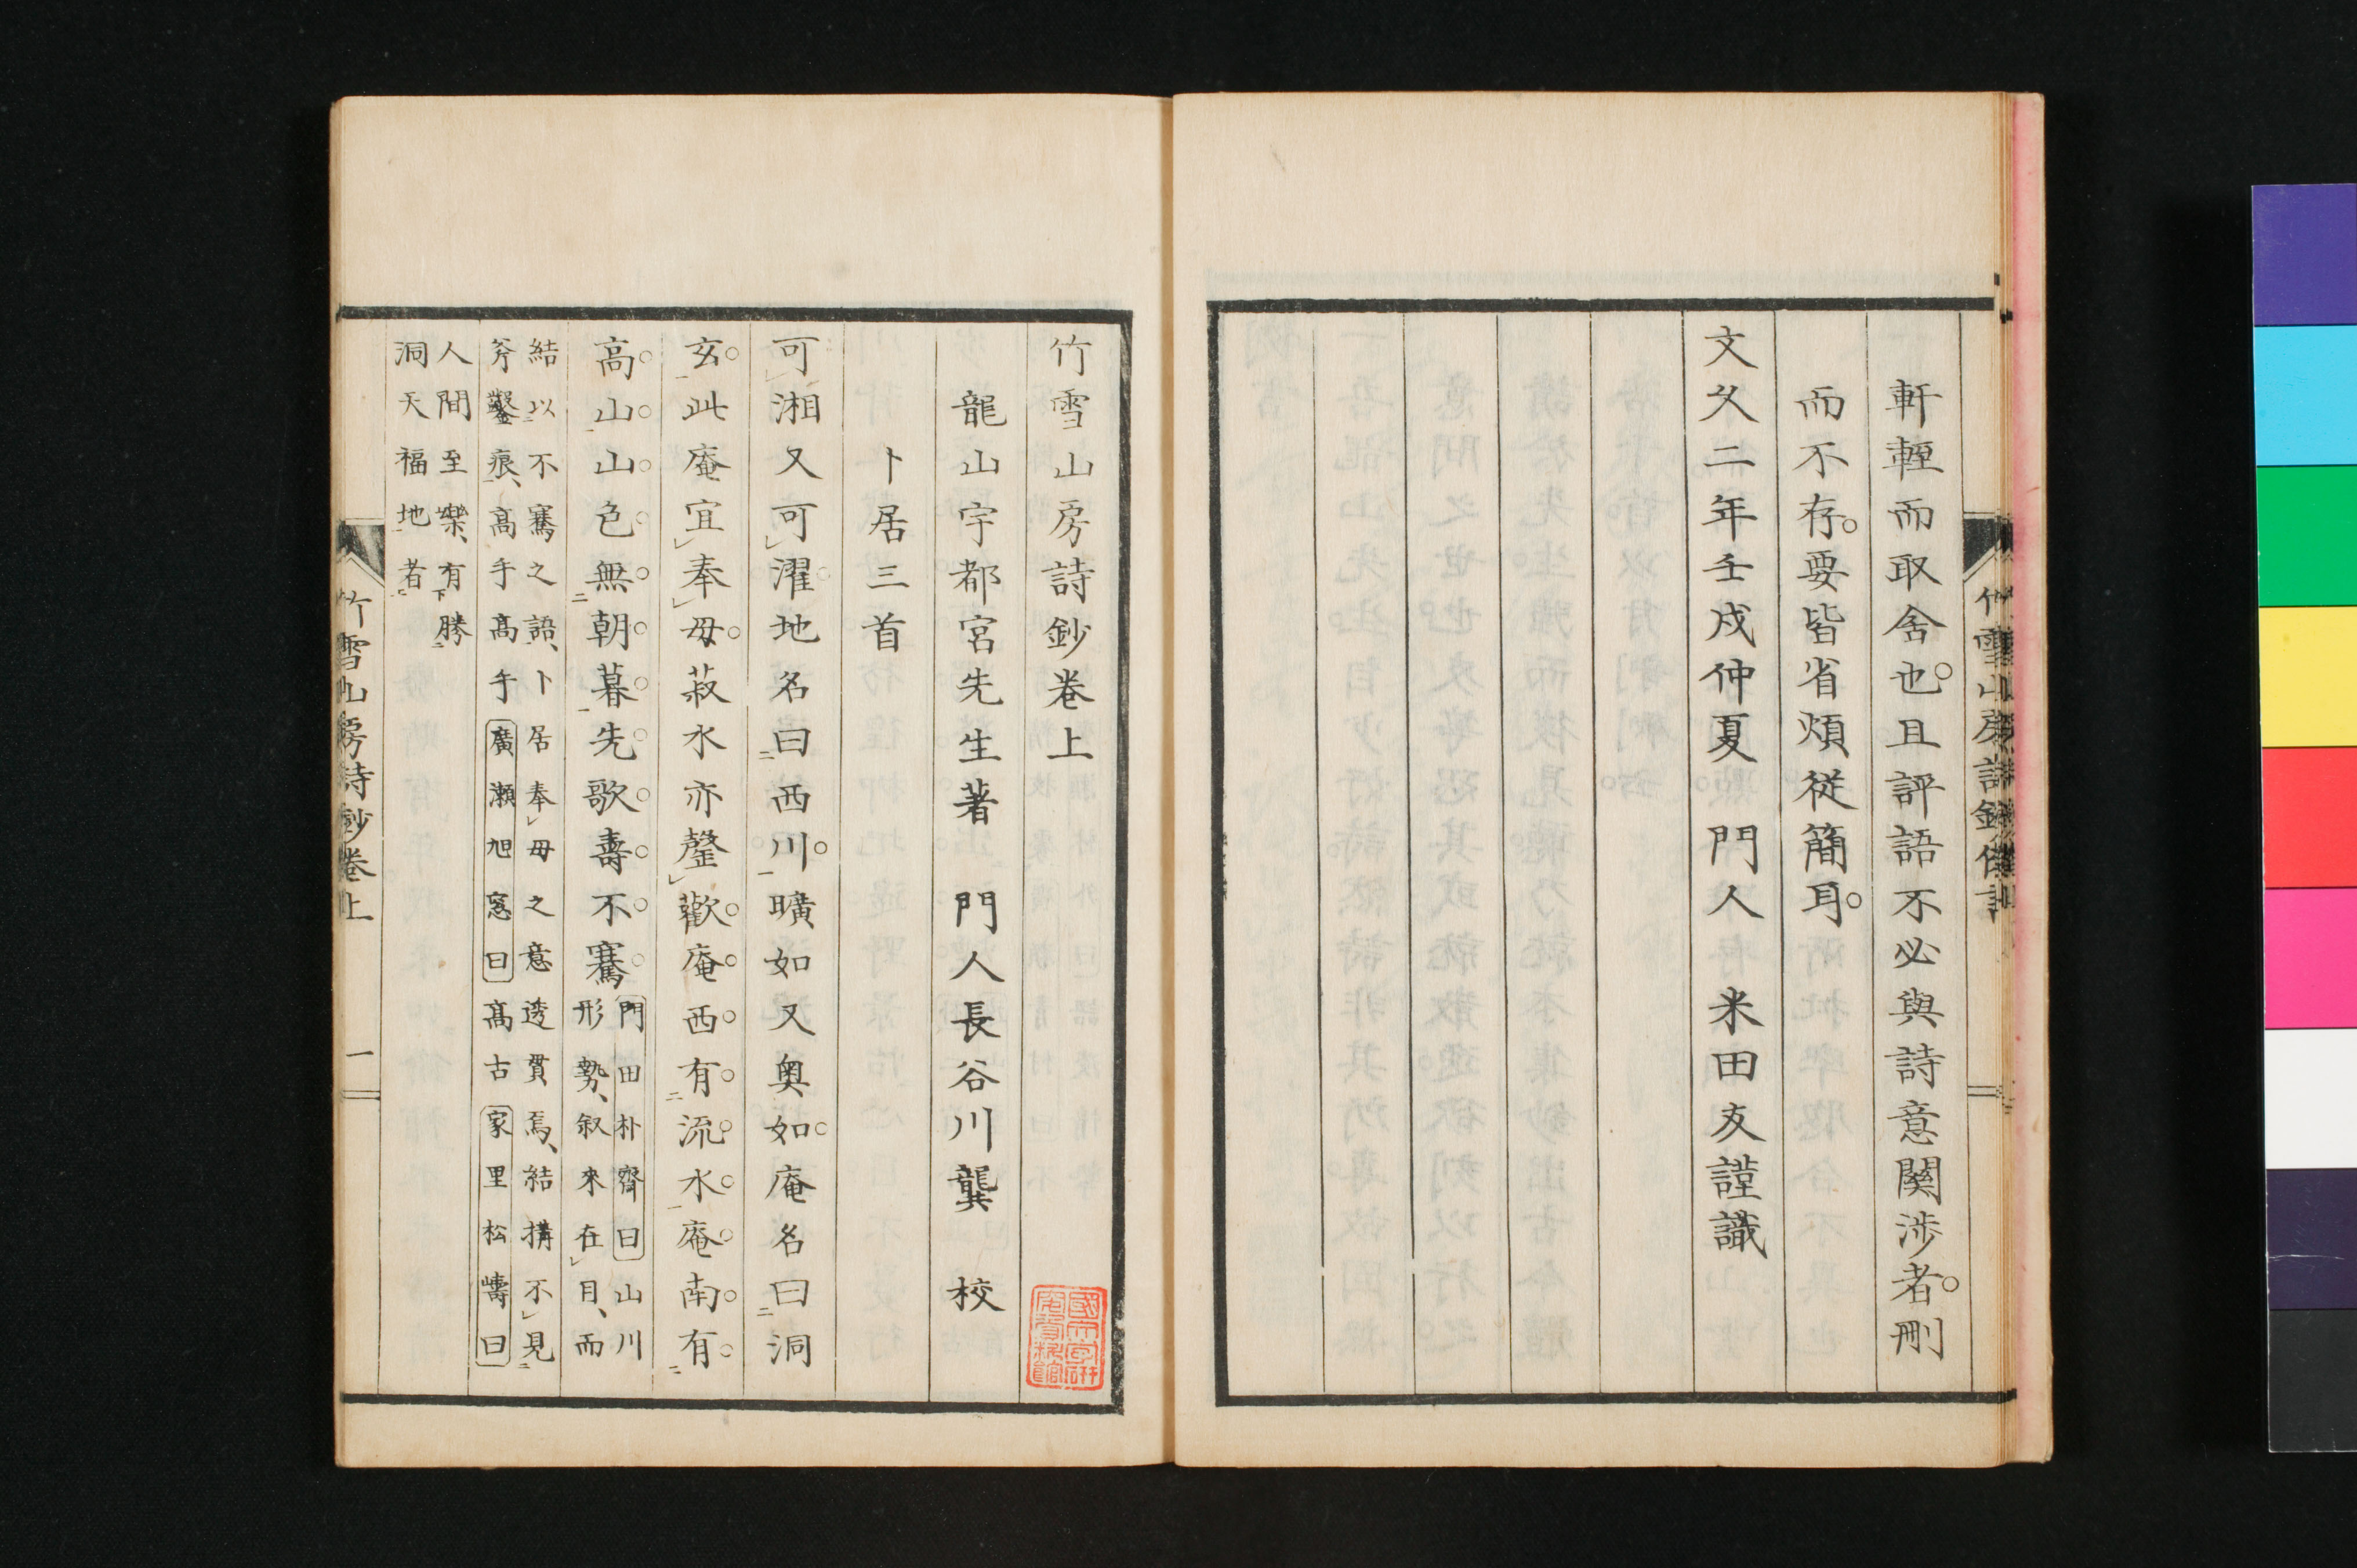 軒輊而取舍也。且評語不必與詩意關渉者。刪
而不存。要皆省煩從簡耳。
文久二年壬戌仲夏 門人 米田友謹識
竹雪山房詩鈔卷上
龍山宇都宮先生著 門人長谷川龔 校
卜居三首
可湘又可濯。地名曰西川。曠如又奥如。庵名曰洞
玄。此庵宜奉母。菽水亦罄歡。庵西有流水。庵南有
高山。山色無朝暮。先歌壽不騫。
門田朴齊曰山川
形勢、叙來在目、而
結以不騫之語、卜居奉母之意透貫焉、結搆不見
斧鑿痕、高手高手廣瀬旭窓曰高古家里松嶹曰
人間至樂、有勝
洞天福地者
竹雪山房詩鈔卷上 一